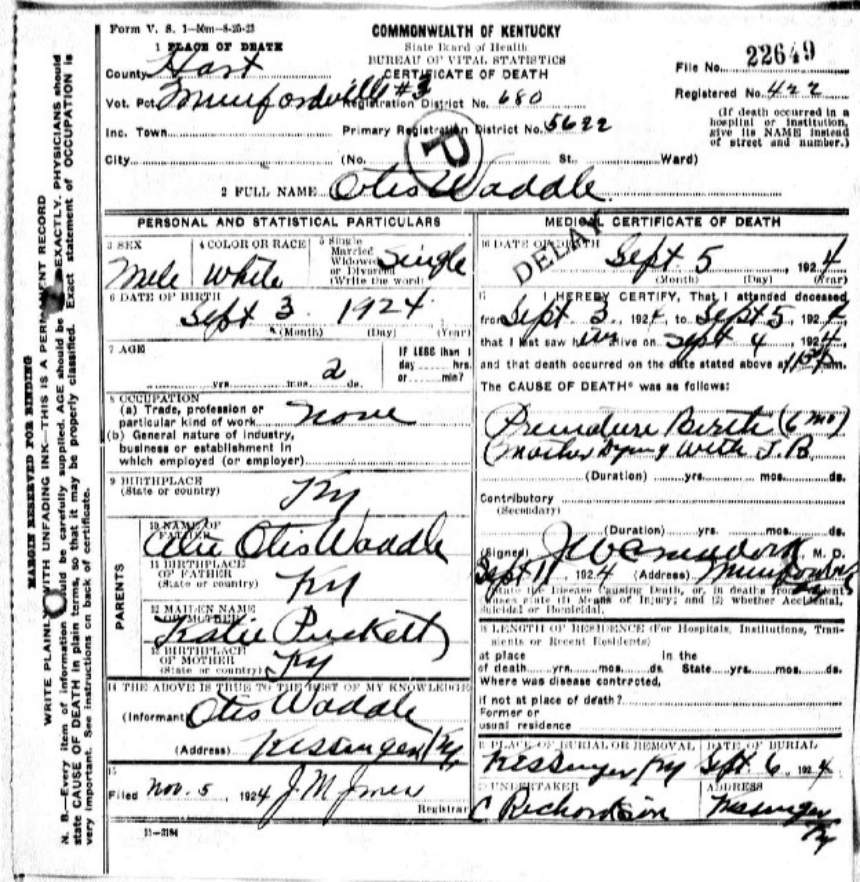 Form V. S. 1-50m-8-20-23
COMMONWEALTH OF KENTUCKY
State Board of Health
BUREAU OF VITAL STATISTICS
CERTIFICATE OF DEATH
File No. 22649
Registered No. 422
(If death occurred in a
hospital or institution,
give its NAME instead
of street and number.)
1 PLACE OF DEATH
County Hart
Vot. Pct. Munfordville #3 Registration District No. 680
Inc. Town Primary Registration District No. 5622
City (No. St. Ward)
P
2 FULL NAME Otis Waddle
PERSONAL AND STATISTICAL PARTICULARS
3 SEX
Male
4 COLOR OR RACE
White
5 Single
Married
Widowed
or Divorced
(Write the word)
Single
6 DATE OF BIRTH
Sept 3 1924
(Month) (Day) (Year)
7 AGE
yrs. mos. 2 ds.
IF LESS than 1
day hrs.
or min?
8 OCCUPATION
(a) Trade, profession or
particular kind of work none
(b) General nature of industry,
business or establishment in
which employed (or employer)
9 BIRTHPLACE
(State or country)
Ky
PARENTS
10 NAME OF
FATHER
Otis Waddle
11 BIRTHPLACE
OF FATHER
(State or country)
Ky
12 MAIDEN NAME
OF MOTHER
Katie Puckett
13 BIRTHPLACE
OF MOTHER
(State or country)
Ky
14 THE ABOVE IS TRUE TO THE BEST OF MY KNOWLEDGE
(Informant) Otis Waddle
(Address) Kessinger Ky.
15
Filed Nov. 5, 1924 J. M. Jones
Registrar
11-3184
MEDICAL CERTIFICATE OF DEATH
DELAY
16 DATE OF DEATH
Sept. 5 1924
(Month) (Day) (Year)
17 I HEREBY CERTIFY, That I attended deceased
from Sept. 3, 1924 to Sept 5, 1924
that I last saw him alive on Sept 4, 1924
and that death occurred on the date stated above at m.
The CAUSE OF DEATH* was as follows:
Premature Birth (6 mo)
(Mother Dying with T. B.
(Duration) yrs. mos. ds.
Contributory
(Secondary)
(Duration) yrs. mos. ds.
(Signed) M. D.
Sept 11, 1924 (Address)
*State the Disease Causing Death, or, in deaths from Violent
Causes state (1) Means of Injury; and (2) whether Accidental,
Suicidal or Homicidal.
18 LENGTH OF RESIDENCE (For Hospitals, Institutions, Tran-
sients or Recent Residents)
at place In the
of death yrs. mos. ds. State yrs. mos. ds.
Where was disease contracted,
if not at place of death?
Former or
usual residence
19 PLACE OF BURIAL OR REMOVAL
Kessinger Ky
DATE OF BURIAL
Sept. 6, 1924
20 UNDERTAKER
C Richardson
ADDRESS
Kessinger
Ky
MARGIN RESERVED FOR BINDING
WRITE PLAINLY WITH UNFADING INK—THIS IS A PERMANENT RECORD
N. B.—Every item of information should be carefully supplied. AGE should be stated EXACTLY. PHYSICIANS should
state CAUSE OF DEATH in plain terms, so that it may be properly classified. Exact statement of OCCUPATION is
very important. See instructions on back of certificate.